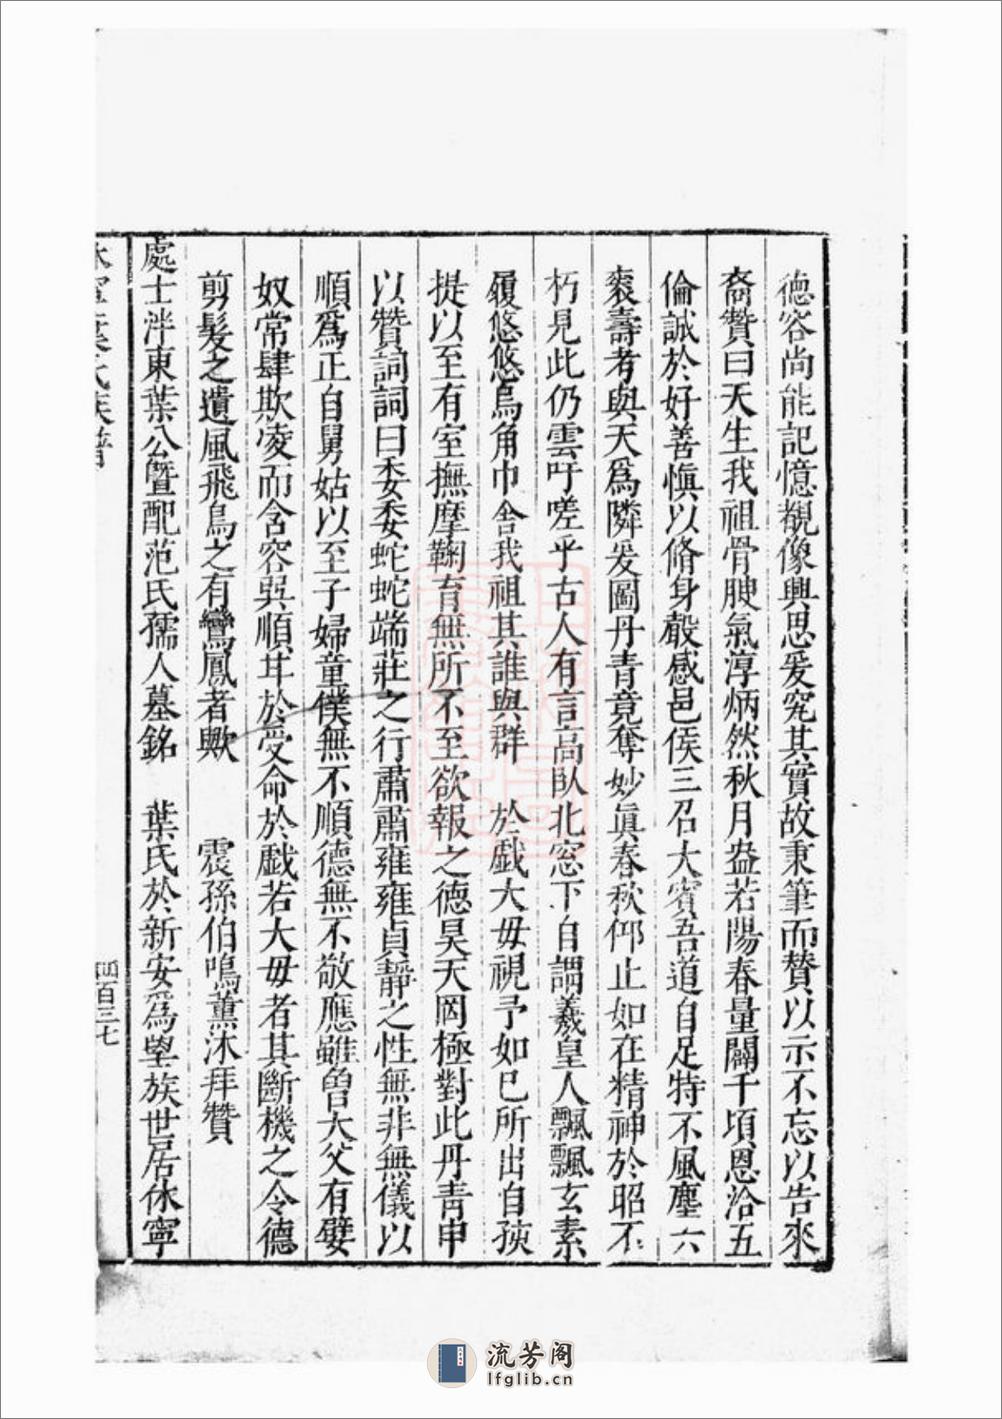 德容尚能記憶覩像興思爰究其實故秉筆而賛以示不忘以告來
裔贊曰天生我祖骨腴氣淳炳然秋月盎若陽春量闊千頃恩洽五
倫誠於好善愼以脩身穀感邑侯三召大賓吾道自足特不風塵六
袠壽考與天爲隣爰圖丹青竟奪妙眞春秋仰止如在精神於昭不
朽見此仍雲吁嗟乎古人有言高臥北窓下自謂羲皇人飄飄玄素
履悠悠烏角巾舍我祖其誰與群　於戱大毋視予如巳所出自孩
提以至有室撫摩鞠育無所不至欲報之德昊天罔極對此丹青申
以贊詞詞曰委委蛇蛇端莊之行肅肅雍雍貞靜之性無非無儀以
順爲正自舅姑以至子婦童僕無不順德無不敬應雖曾大父有嬖
奴常肆欺凌而含容巽順耳於受命於戱若大毋者其斷機之令德
剪髮之遺風飛鳥之有鸞鳳者歟　震孫伯鳴薰沐拜贊
處士泮東葉公曁配范氏孺人墓銘　葉氏於新安爲望族世居休寧
休寧葉氏族譜
四百三七
流芳阁
lfglib.cn